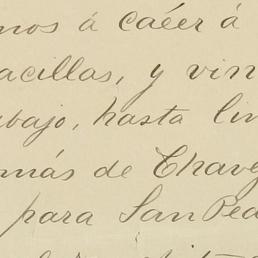 mos á caéer á
acillas, y vin
abajo, hasta lin
más de Chave
para San Ped